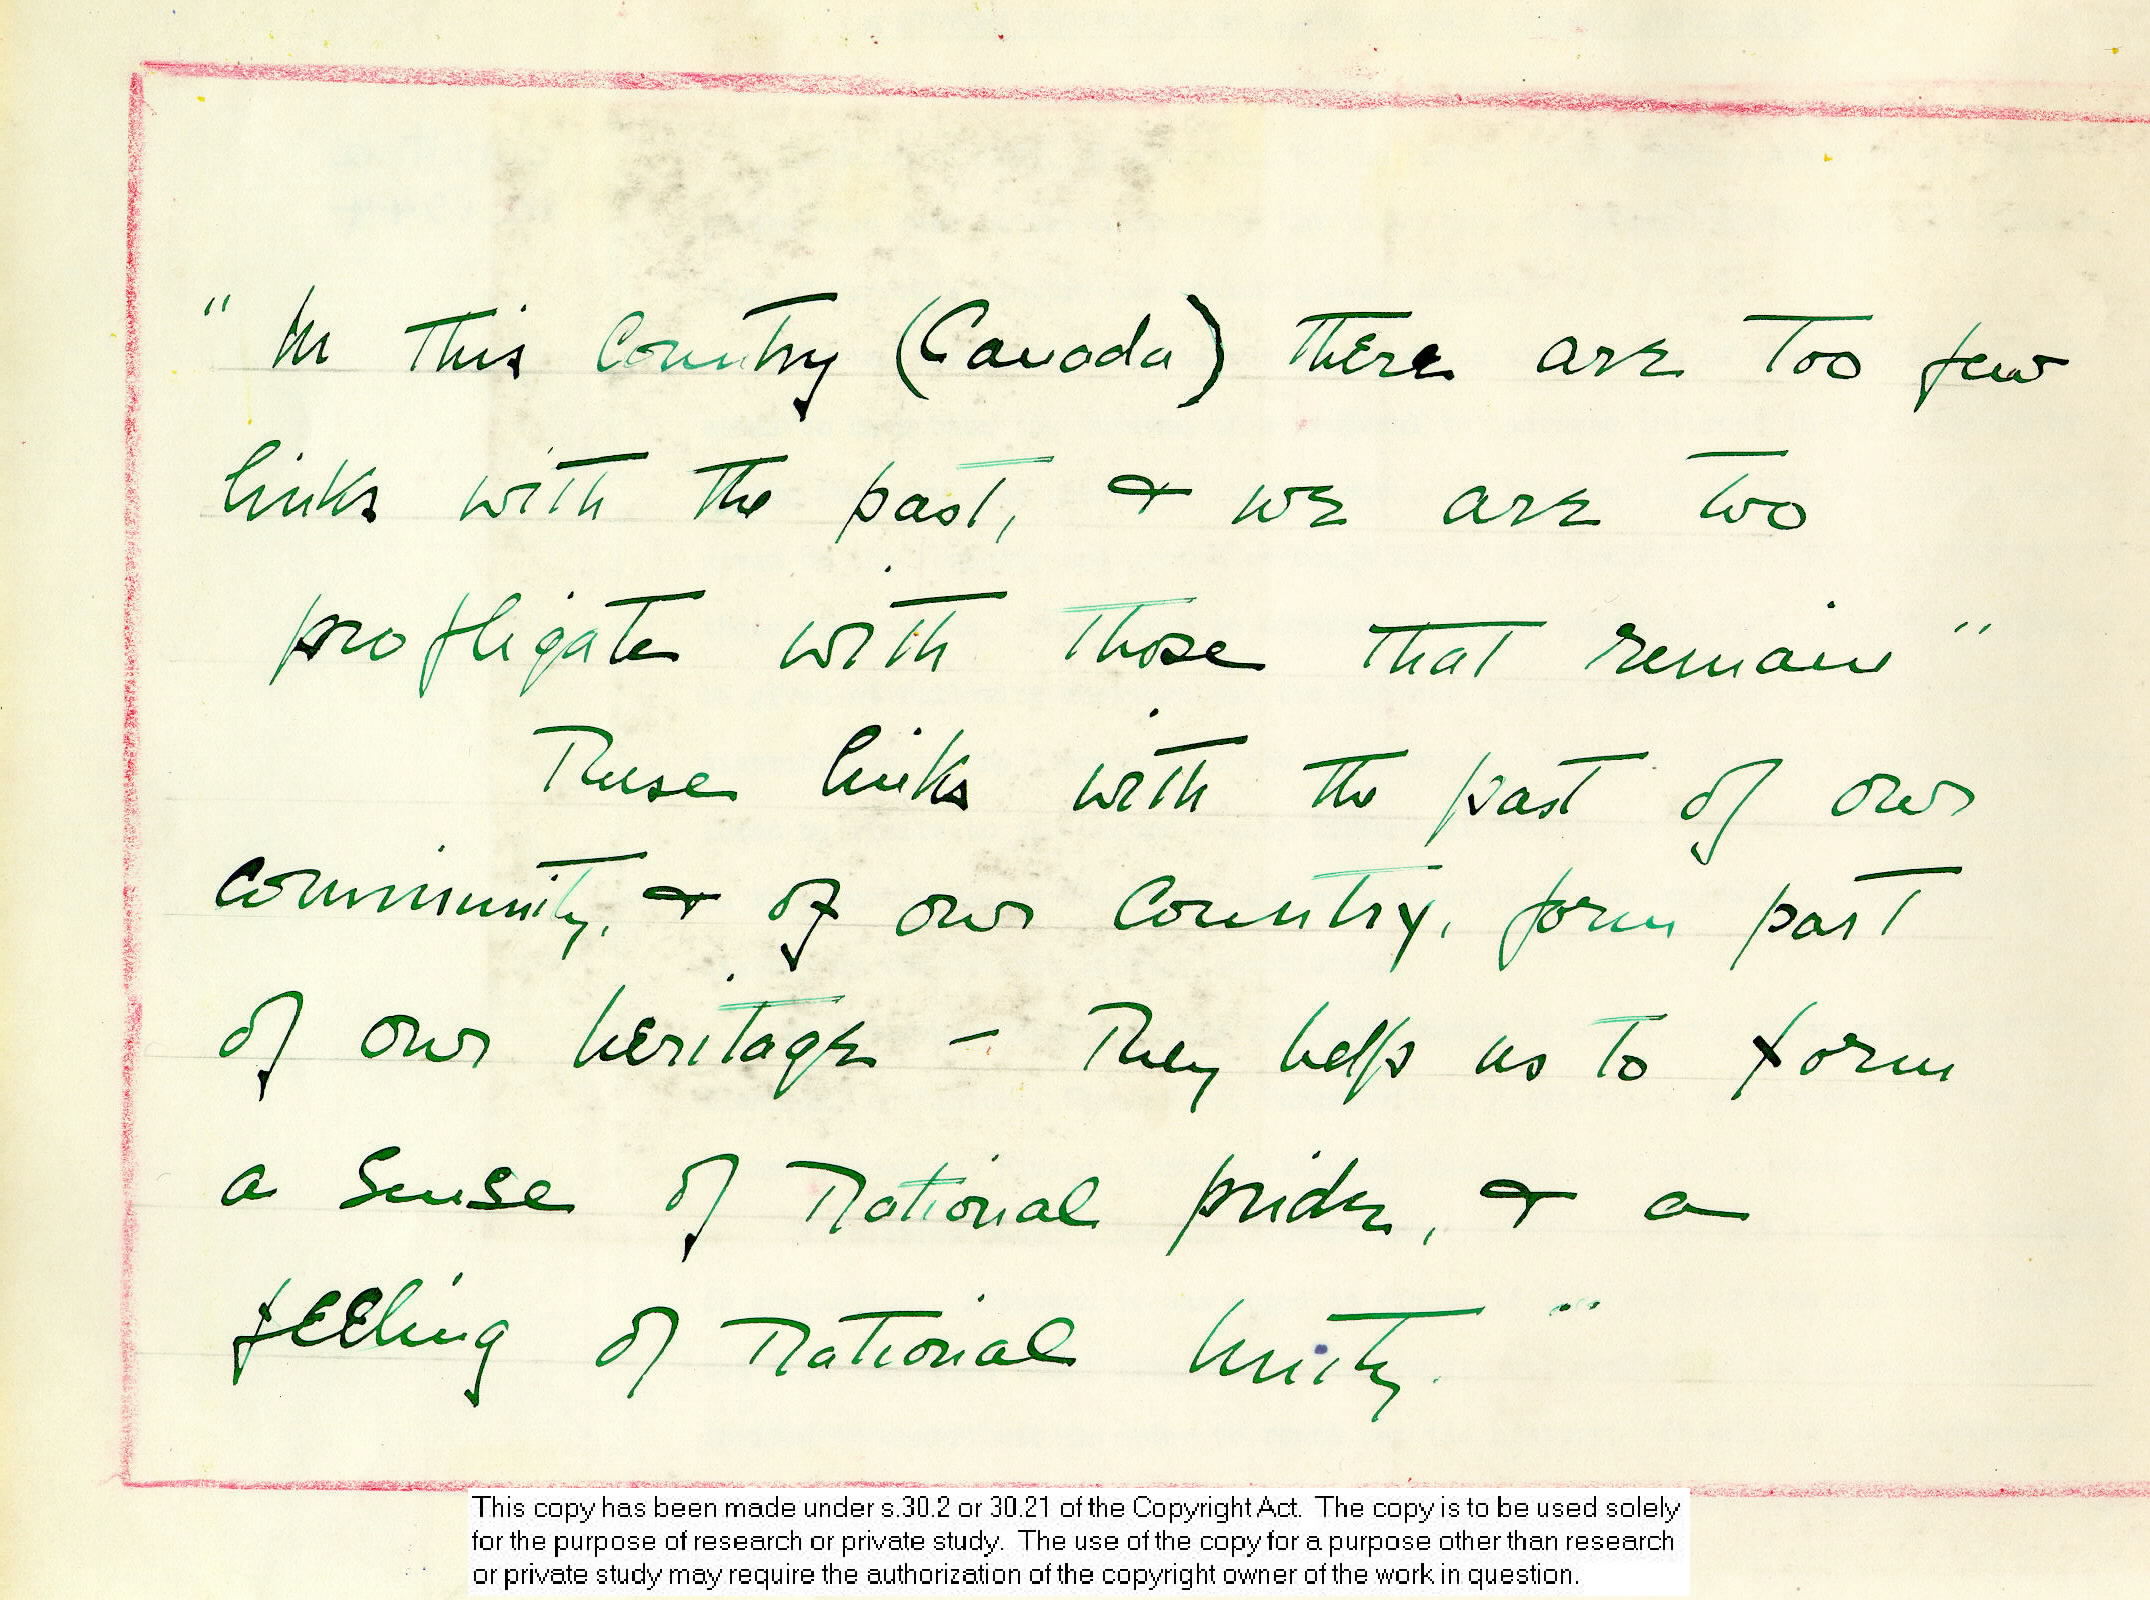 " In this Country (Canada) there are too few
links with the past, & we are too
profligate with those that remain "
These links with the past of our
community, & of our Country, form part
of our heritage - They help us to form
a sense of national pride, & a
feeling of national unity. "
This copy has been made under s.30.2 or 30.21 of the Copyright Act. The copy is to be used solely
for the purpose of research or private study. The use of the copy for a purpose other than research
or private study may require the authorization of the copyright owner of the work in question.